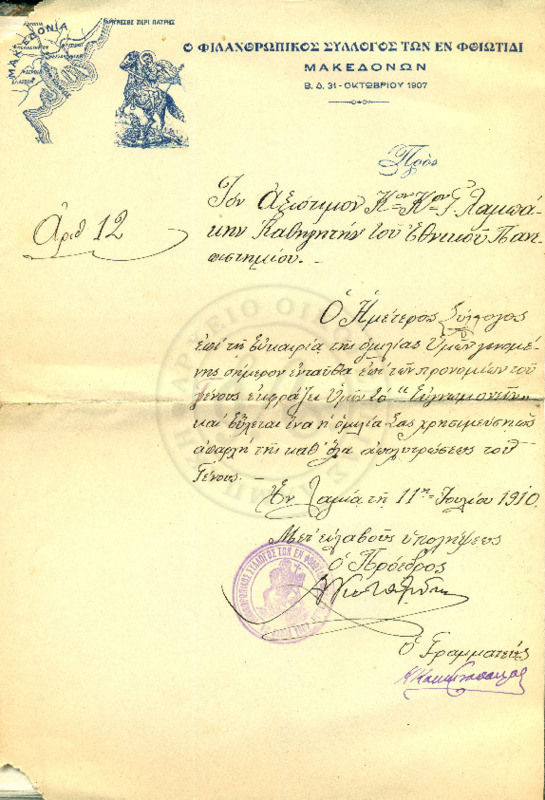 ΜΑΚΕΔΟΝΙΑ
ΑΜΥΝΕΣΘΕ ΠΕΡΙ ΠΑΤΡΗΣ
Ο ΦΙΛΑΝΘΡΩΠΙΚΟΣ ΣΥΛΛΟΓΟΣ ΤΩΝ ΕΝ ΦΘΙΩΤΙΔΙ
ΜΑΚΕΔΟΝΩΝ
Β. Δ. 31 - ΟΚΤΩΒΡΙΟΥ 1907
Πρὸς
Τὸν Ἀξιότιμον Κον Κον Γ. Λαμπά-
κην Καθηγητὴν τοῦ Ἐθνικοῦ Πανε-
πιστημίου.
Ἀριθ 12
Ὁ Ἡμέτερος Σύλλογος
ἐπὶ τῇ εὐκαιρίᾳ τῆς ὁμιλίας Ὑμῶν γενομέ-
νης σήμερον ἐνταῦθα ἐπὶ τῶν προνομίων τοῦ
Γένους ἐκφράζει Ὑμῖν τὸ "Εὐγνωμονεῖν"
καὶ εὔχεται ἵνα ἡ ὁμιλία Σας χρησιμεύσῃ ὡς
ἀπαρχὴ τῆς καθ' ὅλα ἀπολυτρώσεως τοῦ
Γένους.
Ἐν Λαμίᾳ τῇ 11ῃ Ἰουλίου 1910
Μετ' εὐλαβοῦς ὑπολήψεως
ὁ Πρόεδρος
ὁ Γραμματεὺς